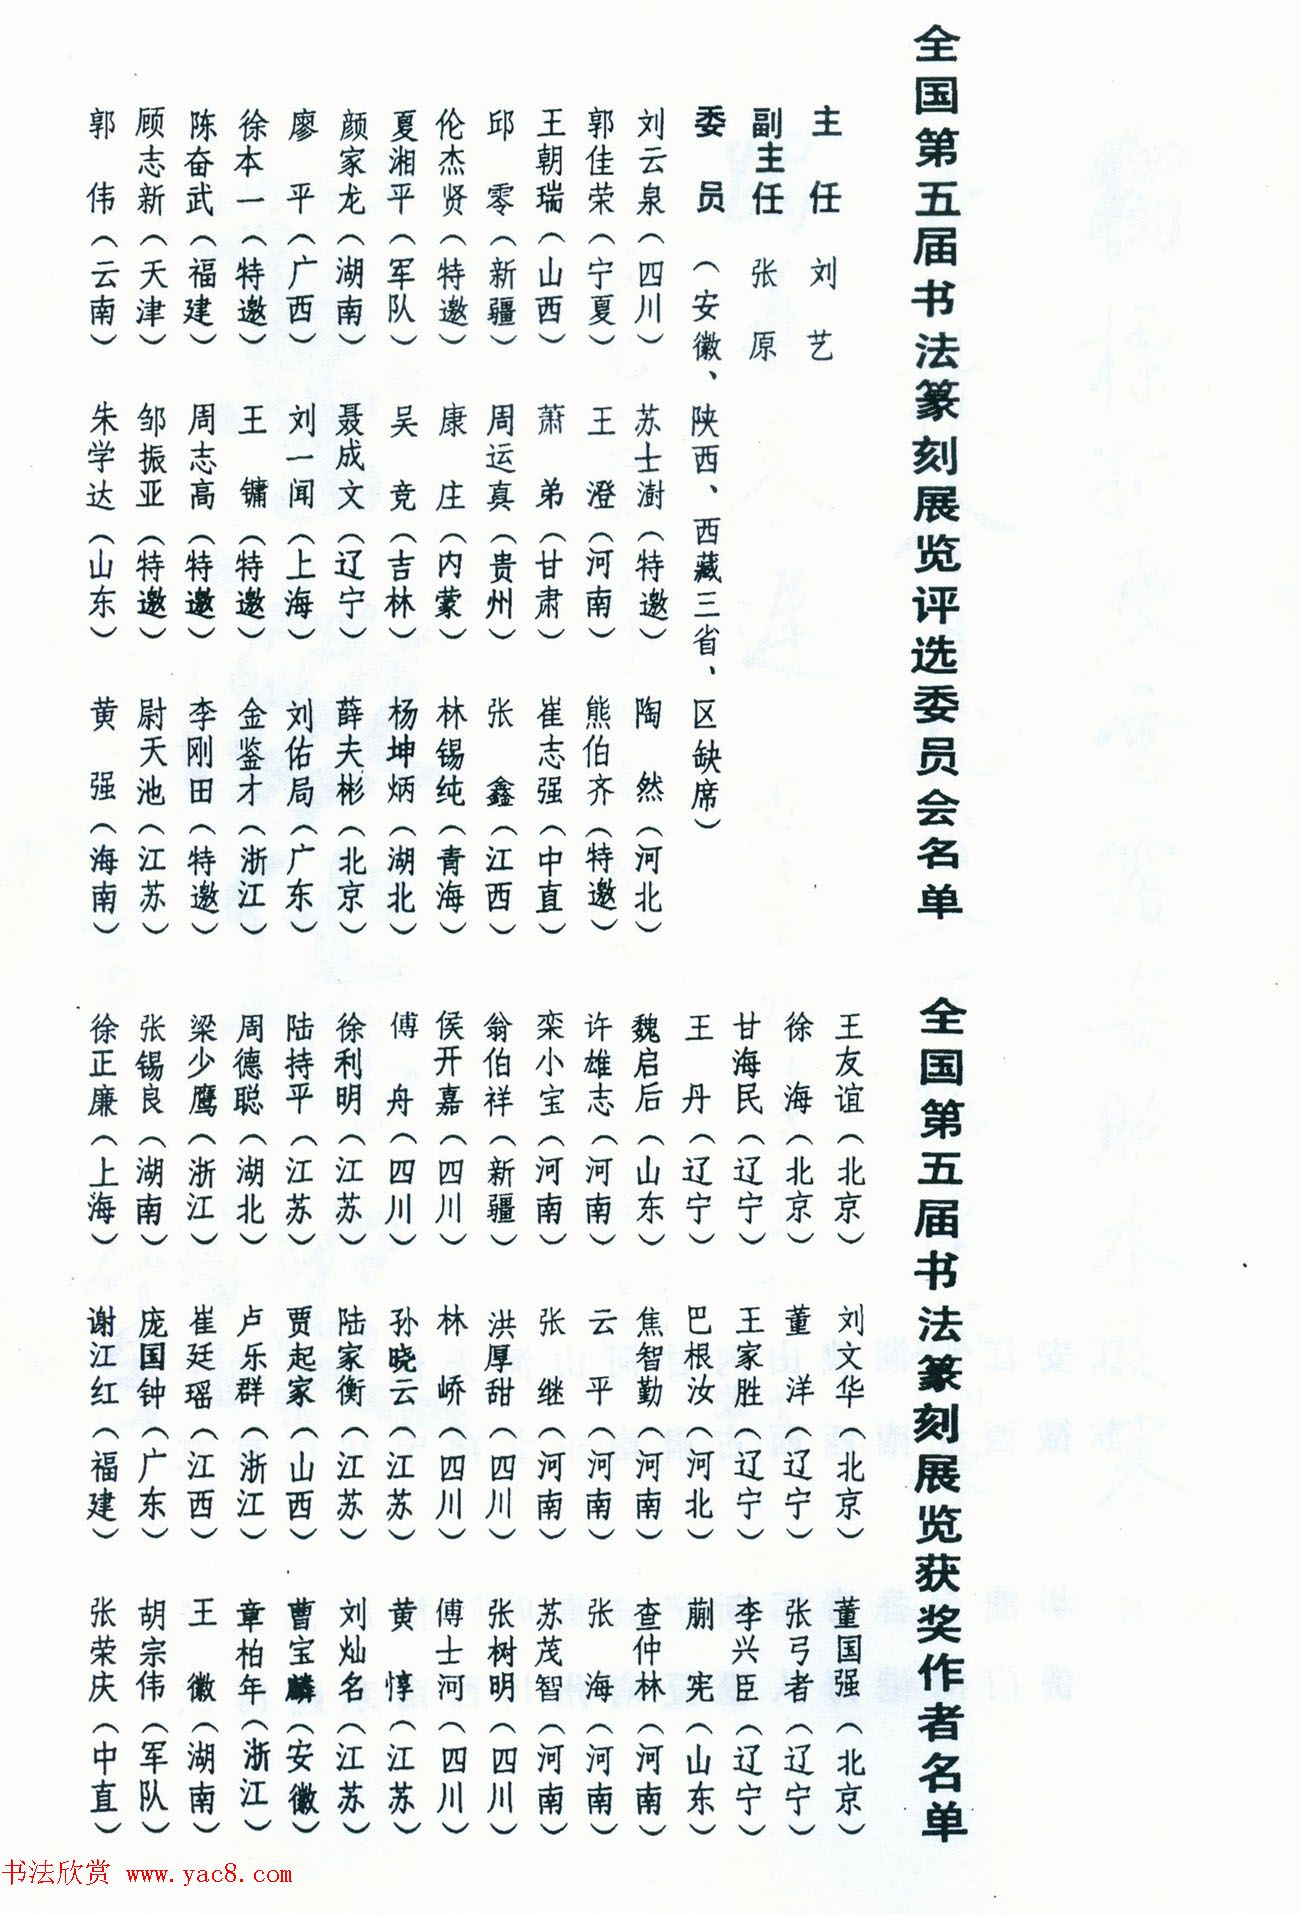 全国第五届书法篆刻展览评选委员会名单
主 任 刘 艺
副主任 张 原
委 员 (安徽、陕西、西藏三省、区缺席)
刘云泉(四川) 苏士澍(特邀) 陶 然(河北)
郭佳荣(宁夏) 王 澄(河南) 熊伯齐(特邀)
王朝瑞(山西) 萧 弟(甘肃) 崔志强(中直)
邱 零(新疆) 周运真(贵州) 张 鑫(江西)
伦杰贤(特邀) 康 庄(内蒙) 林锡纯(青海)
夏湘平(军队) 吴 竞(吉林) 杨坤炳(湖北)
颜家龙(湖南) 聂成文(辽宁) 薛夫彬(北京)
廖 平(广西) 刘一闻(上海) 刘佑局(广东)
徐本一(特邀) 王 镛(特邀) 金鉴才(浙江)
陈奋武(福建) 周志高(特邀) 李刚田(特邀)
顾志新(天津) 邹振亚(特邀) 尉天池(江苏)
郭 伟(云南) 朱学达(山东) 黄 强(海南)
全国第五届书法篆刻展览获奖作者名单
王友谊(北京) 刘文华(北京) 董国强(北京)
徐 海(北京) 董 洋(辽宁) 张弓者(辽宁)
甘海民(辽宁) 王家胜(辽宁) 李兴臣(辽宁)
王 丹(辽宁) 巴根汝(河北) 蒯 宪(山东)
魏启后(山东) 焦智勤(河南) 查仲林(河南)
许雄志(河南) 云 平(河南) 张 海(河南)
栾小宝(河南) 张 继(河南) 苏茂智(河南)
翁伯祥(新疆) 洪厚甜(四川) 张树明(四川)
侯开嘉(四川) 林 峤(四川) 傅士河(四川)
傅 舟(四川) 孙晓云(江苏) 黄 惇(江苏)
徐利明(江苏) 陆家衡(江苏) 刘灿名(江苏)
陆持平(江苏) 贾起家(山西) 曹宝麟(安徽)
周德聪(湖北) 卢乐群(浙江) 章柏年(浙江)
梁少鹰(浙江) 崔廷瑶(江西) 王 徽(湖南)
张锡良(湖南) 庞国钟(广东) 胡宗伟(军队)
徐正廉(上海) 谢江红(福建) 张荣庆(中直)
书法欣赏 www.yac8.com